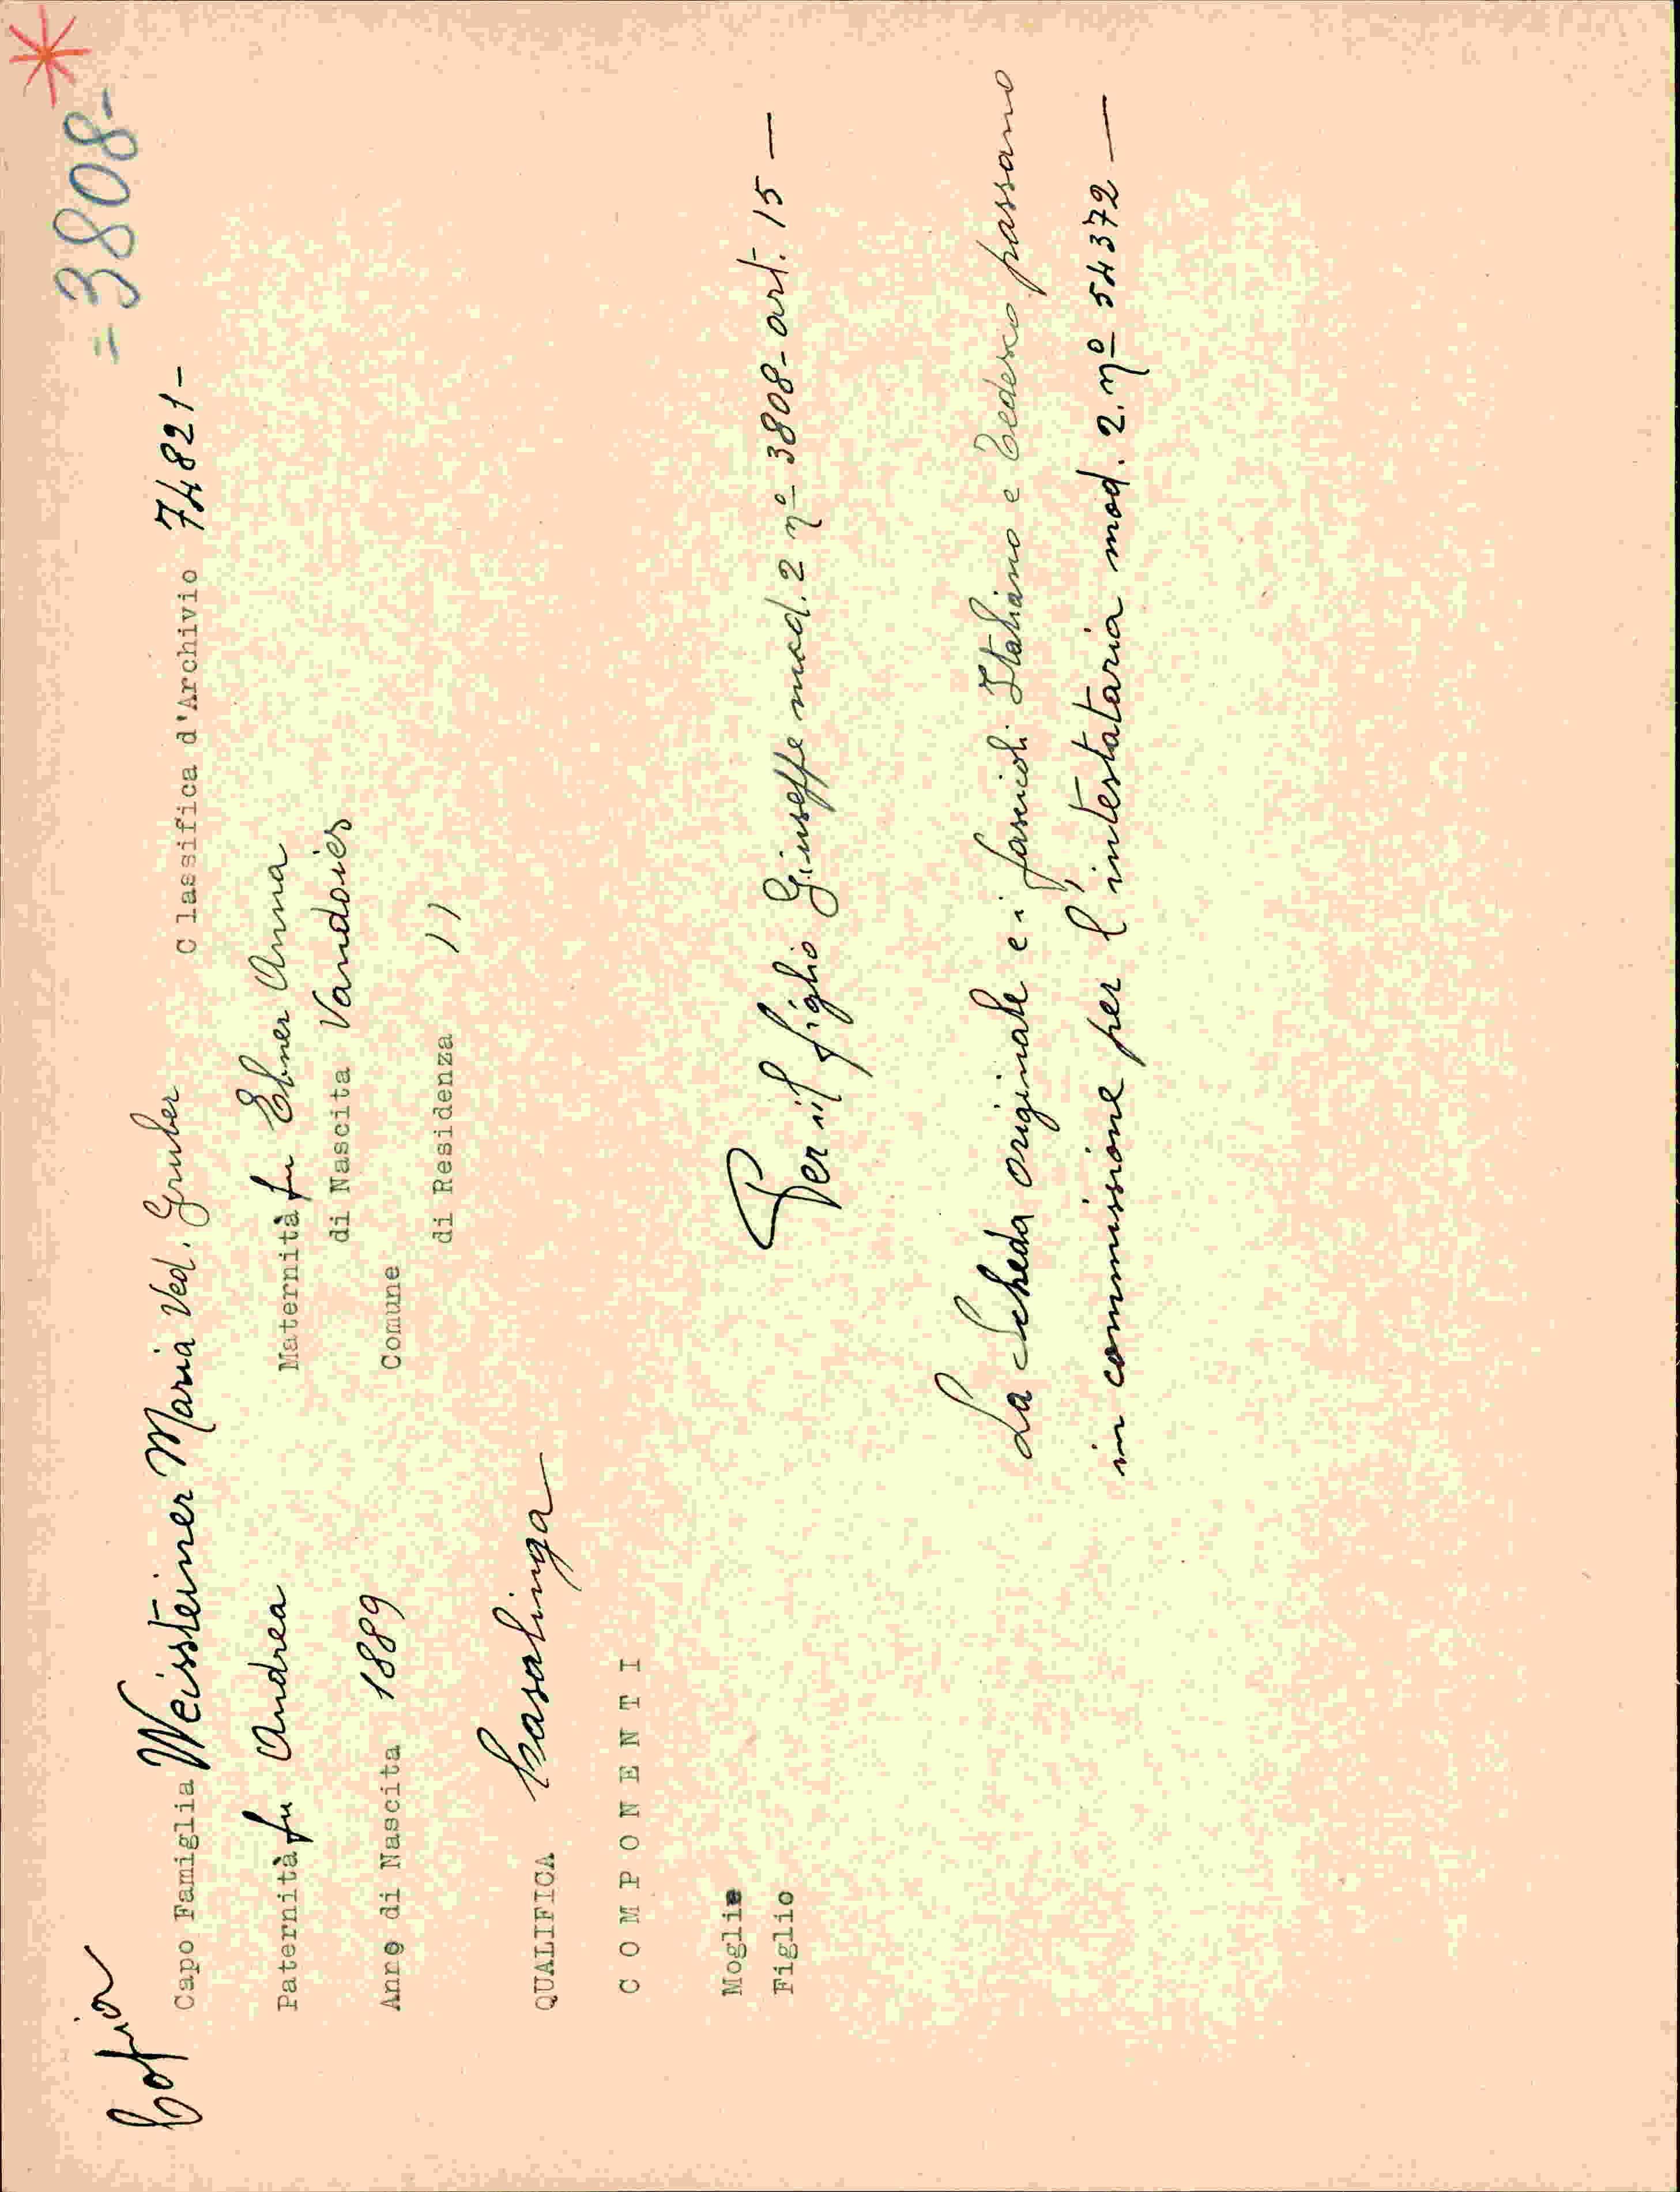 Copia
= 3808 -
Capo Famiglia Weissteiner Maria Ved. Gruber Classifica d'Archivio 74821 -
Paternità fu Andrea Maternità fu Ebner Anna
di Nascita Vandoies
Anno di Nascita 1889 Comune
di Residenza 11
QUALIFICA Casalinga
COMPONENTI
Moglie
Figlio Per il figlio Giuseppe mod. 2 nº 3808 - art. 15 —
La scheda originale e i fascicoli Italiano e Tedesco passano
in commissione per l'intestataria mod. 2. nº 54372 —